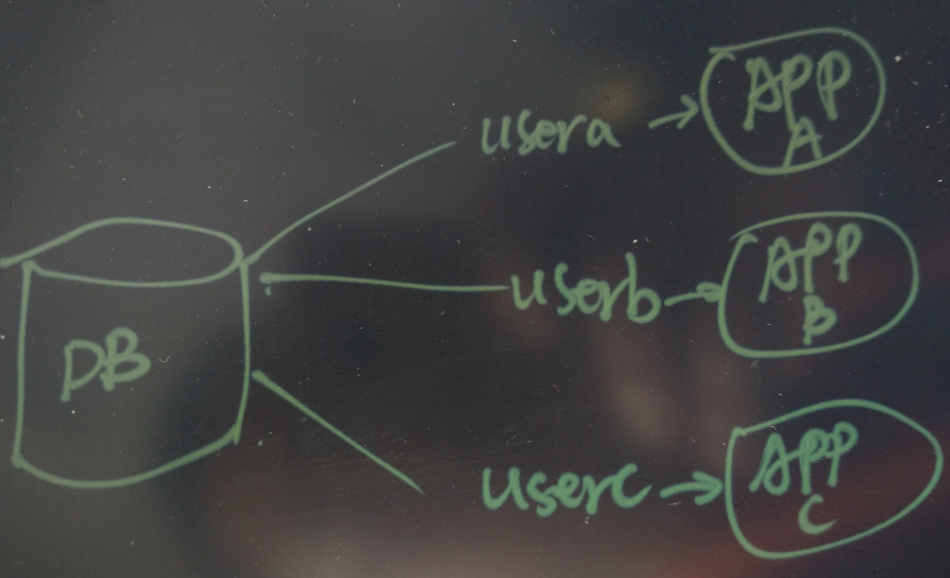 usera
APP
A
DB
userb
APP
B
userc
APP
C